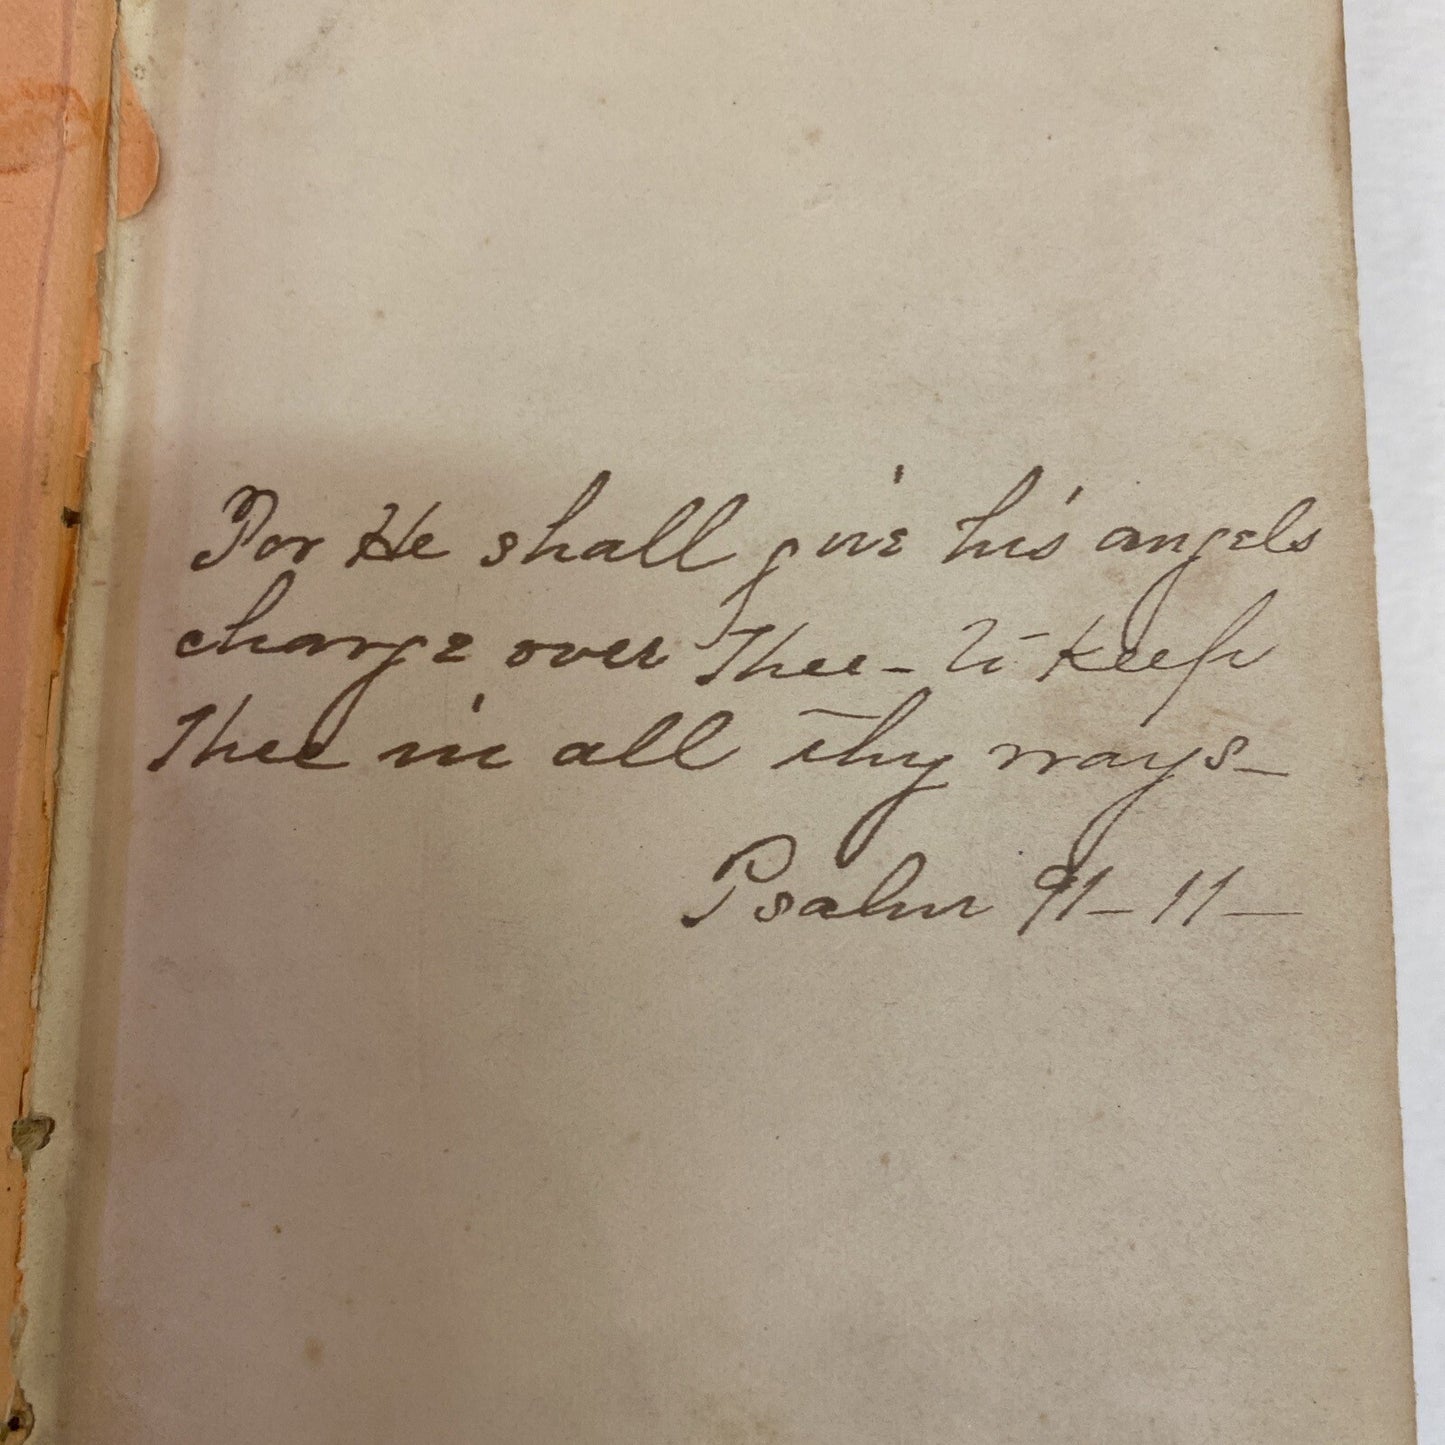 For He shall give his angels
charge over Thee - To keep
Thee in all thy ways -
Psalm 91 - 11 -